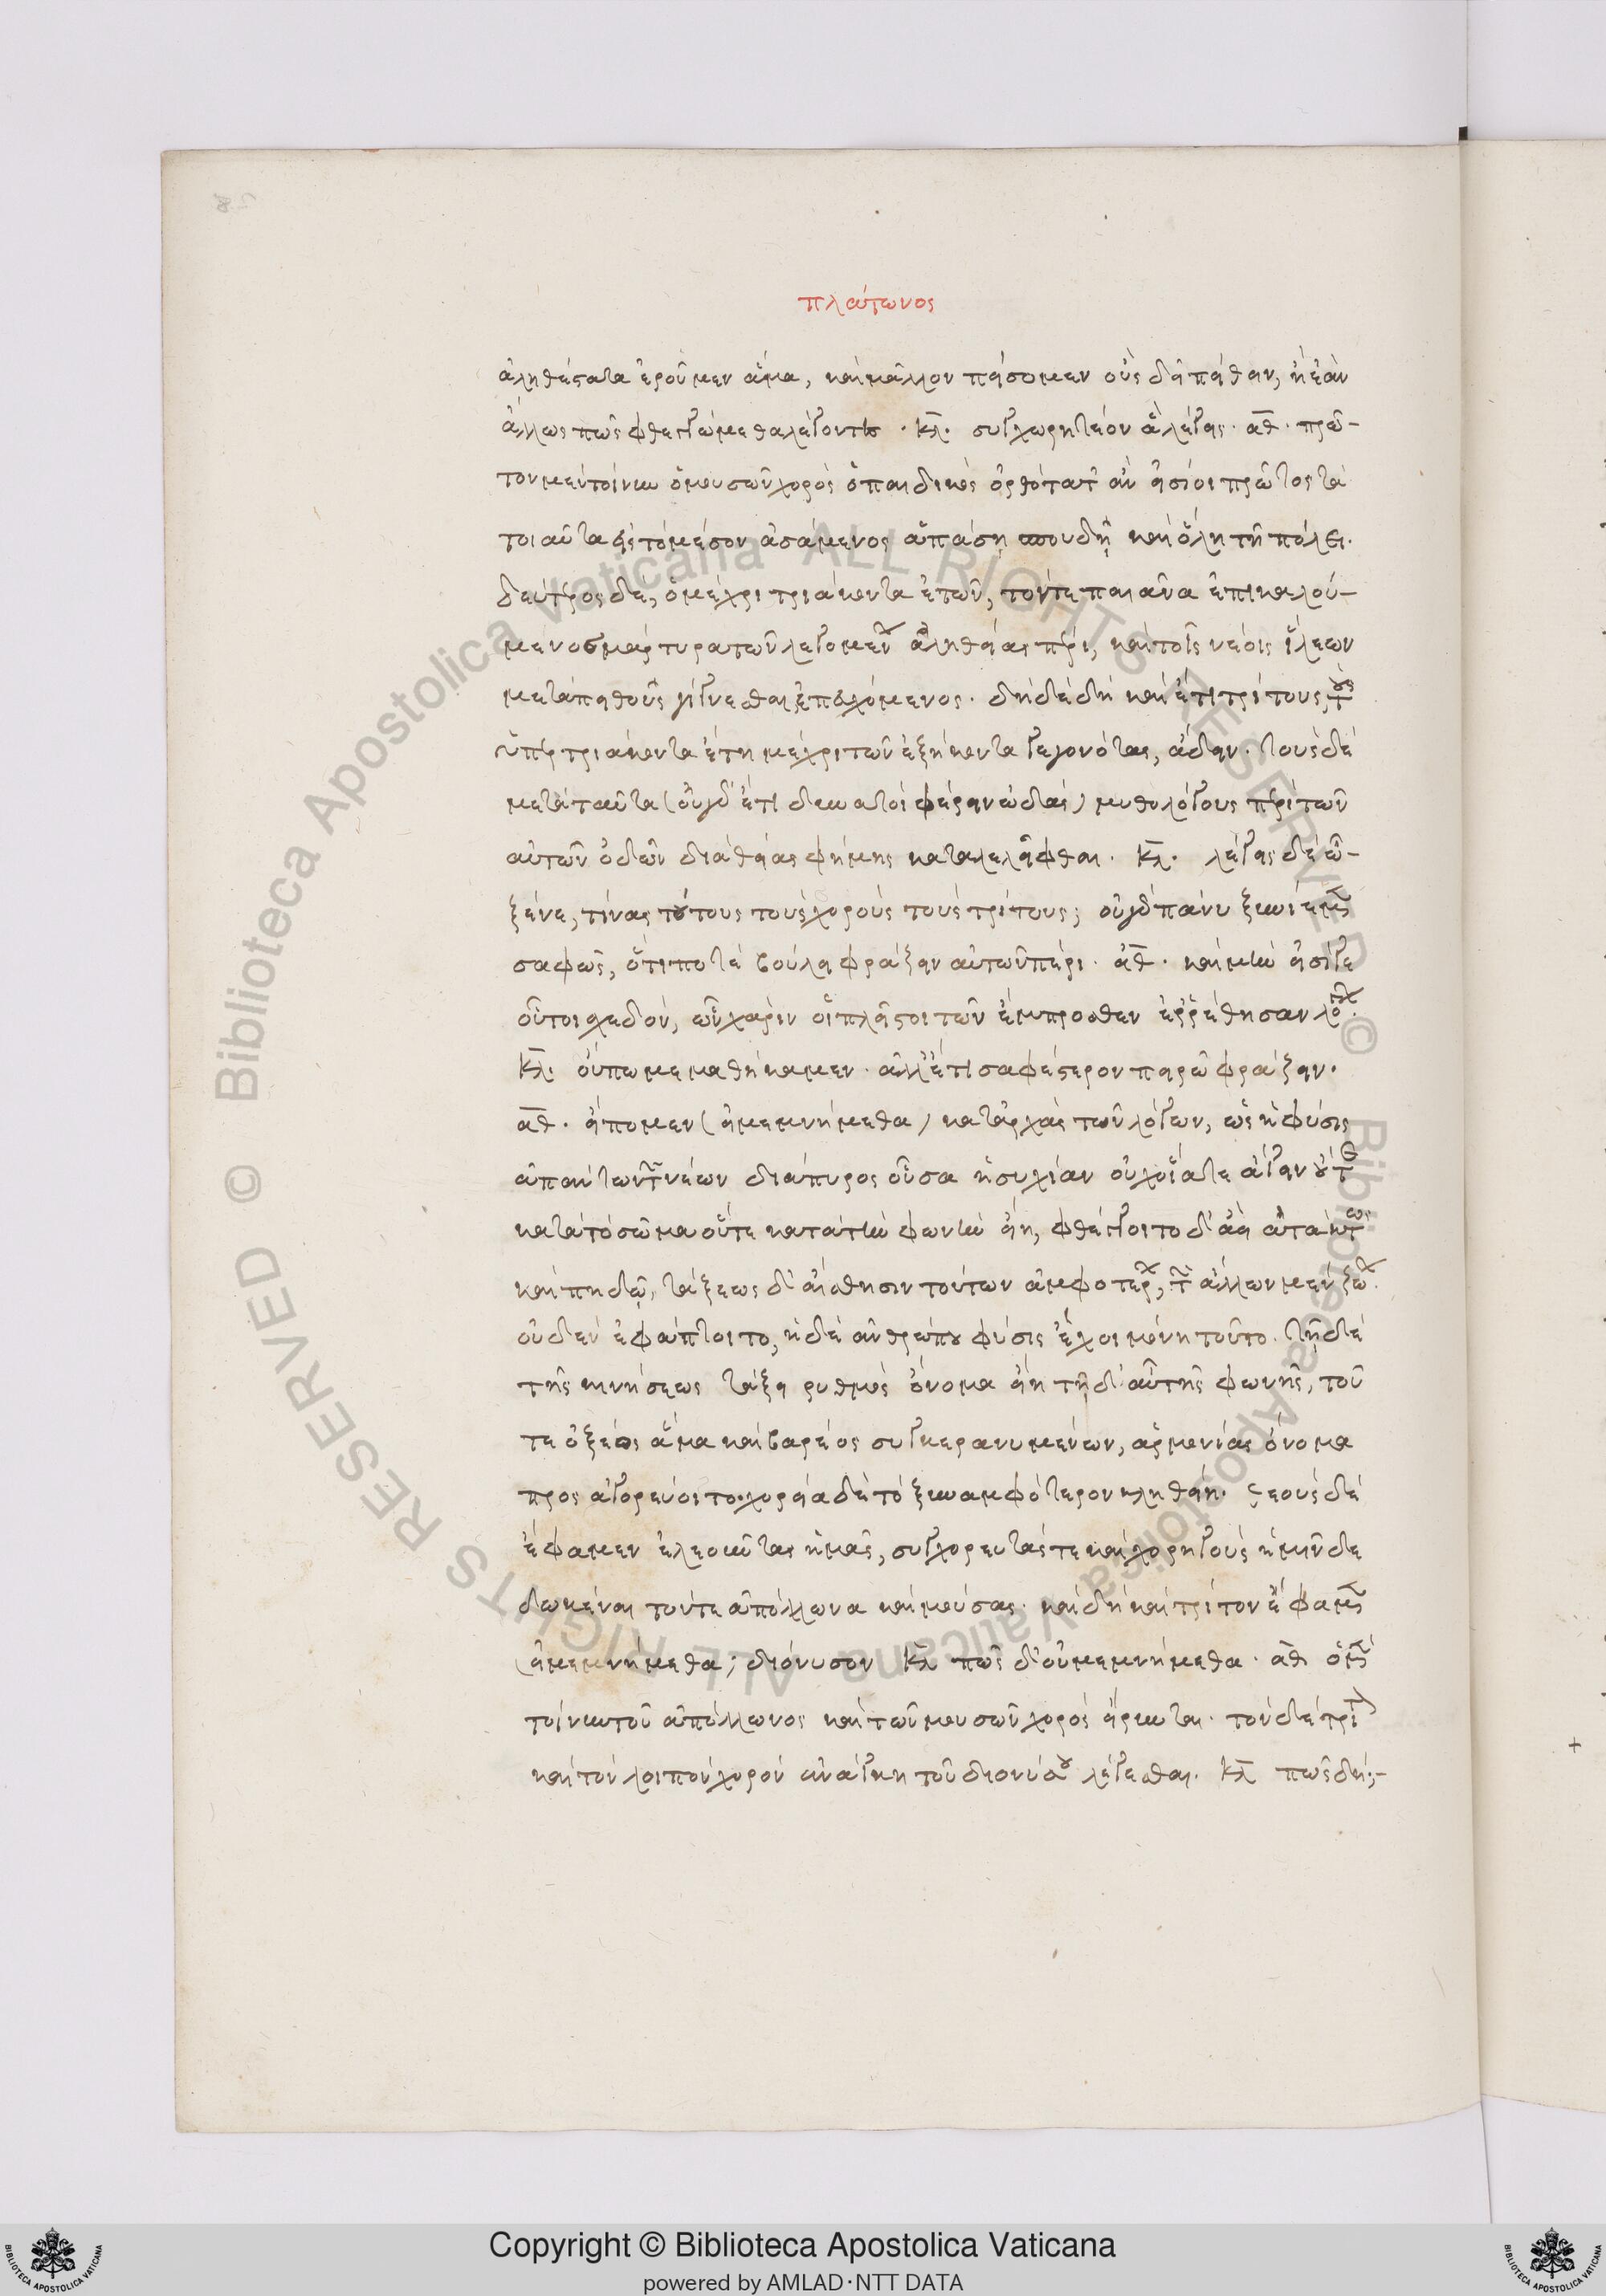 πλάτωνος
ἀληθέστατα ἐροῦμεν ἅμα, καὶ μᾶλλον πείσομεν οὓς δεῖ πείθειν, ἢ ἐὰν
ἄλλως πως φθεγγώμεθα λέγοντες . κλ. συγχωρητέον ἃ λέγεις. ἀθ. πρῶ-
τον μὲν τοίνυν ὁ μουσῶν χορὸς ὁ παιδικὸς ὀρθότατ' ἂν εἰσίοι πρῶτος τὰ
τοιαῦτα εἰς τὸ μέσον ἀσάμενος ἁπάση σπουδῇ καὶ ὅλη τῆ πόλει.
δεύτερος δὲ, ὁ μέχρι τριάκοντα ἐτῶν, τόν τε παιᾶνα ἐπικαλού-
μενος μάρτυρα τῶν λεγομένων ἀληθείας πέρι, καὶ τοῖς νέοις ἵλεων
μετὰ πειθοῦς γίγνεσθαι ἐπευχόμενος. δεῖ δὲ δὴ καὶ ἔτι τρίτους, τοὺς
ὑπὲρ τριάκοντα ἔτη μέχρι τῶν ἑξήκοντα γεγονότας, ἄδειν. τοὺς δὲ
μετὰ ταῦτα (οὐ γὰρ ἔτι δυνατοὶ φέρειν ὠδάς) μυθολόγους περὶ τῶν
αὐτῶν ὀδῶν διὰ θείας φήμης καταλελεῖφθαι. κλ. λέγεις δὲ ὦ-
ξένε, τίνας τούτους τοὺς χοροὺς τοὺς τρίτους; οὐ γὰρ πάνυ ξυνίεμεν
σαφῶς, ὅτι ποτὲ βούλει φράζειν αὐτῶν πέρι. ἀθ. καὶ μὴν εἰσί γε
οὗτοι σχεδὸν, ὧν χάριν οἱ πλεῖστοι τῶν ἔμπροσθεν ἐρρέθησαν λόγων.
κλ. οὔπω μεμαθήκαμεν. ἀλλ' ἔτι σαφέστερον πειρῶ φράζειν.
ἀθ. εἴπομεν (εἰ μεμνήμεθα) κατ' ἀρχὰς τῶν λόγων, ὡς ἡ φύσις
ἁπάντων τῶν νέων διάπυρος οὖσα ἡσυχίαν οὐχ οἵα τε ἄγειν οὔτε
κατὰ τὸ σῶμα οὔτε κατὰ τὴν φωνὴν εἴη, φθέγγοιτο δ' ἀεὶ ἀτάκτως
καὶ πηδῶ, τάξεως δ' αἴσθησιν τούτων ἀμφοτέρων, τῶν ἄλλων μὲν ζώων
οὐδὲν ἐφάπτοιτο, ἡ δὲ ἀνθρώπου φύσις ἔχοι μόνη τοῦτο. τῇ δὲ
τῆς κινήσεως τάξει ρυθμὸς ὄνομα εἴη τῇ δ' αὖ τῆς φωνῆς, τοῦ
τε ὀξέος ἅμα καὶ βαρέος συγκερανυμένων, ἁρμονίας ὄνομα
προσαγορεύοιτο. χορεία δὲ τὸ ξυναμφότερον κληθείη. θεοὺς δὲ
ἔφαμεν ἐλεοῦντας ἡμᾶς, συγχορευτάς τε καὶ χορηγοὺς ἡμῖν δε
δωκέναι τόν τε ἀπόλλωνα καὶ μούσας. καὶ δὴ καὶ τρίτον ἔφαμεν
(εἰ μεμνήμεθα; διόνυσον κλ πῶς δ' οὐ μεμνήμεθα. ἀθ ὁ μὲν
τοίνυν τοῦ ἀπόλλωνος καὶ τῶν μουσῶν χορὸς εἴρηνται. τὸν δὲ τρίτον
καὶ τὸν λοιπὸν χορὸν ἀνάγκη τοῦ διονύσου λέγεσθαι. κλ πῶς δή;-